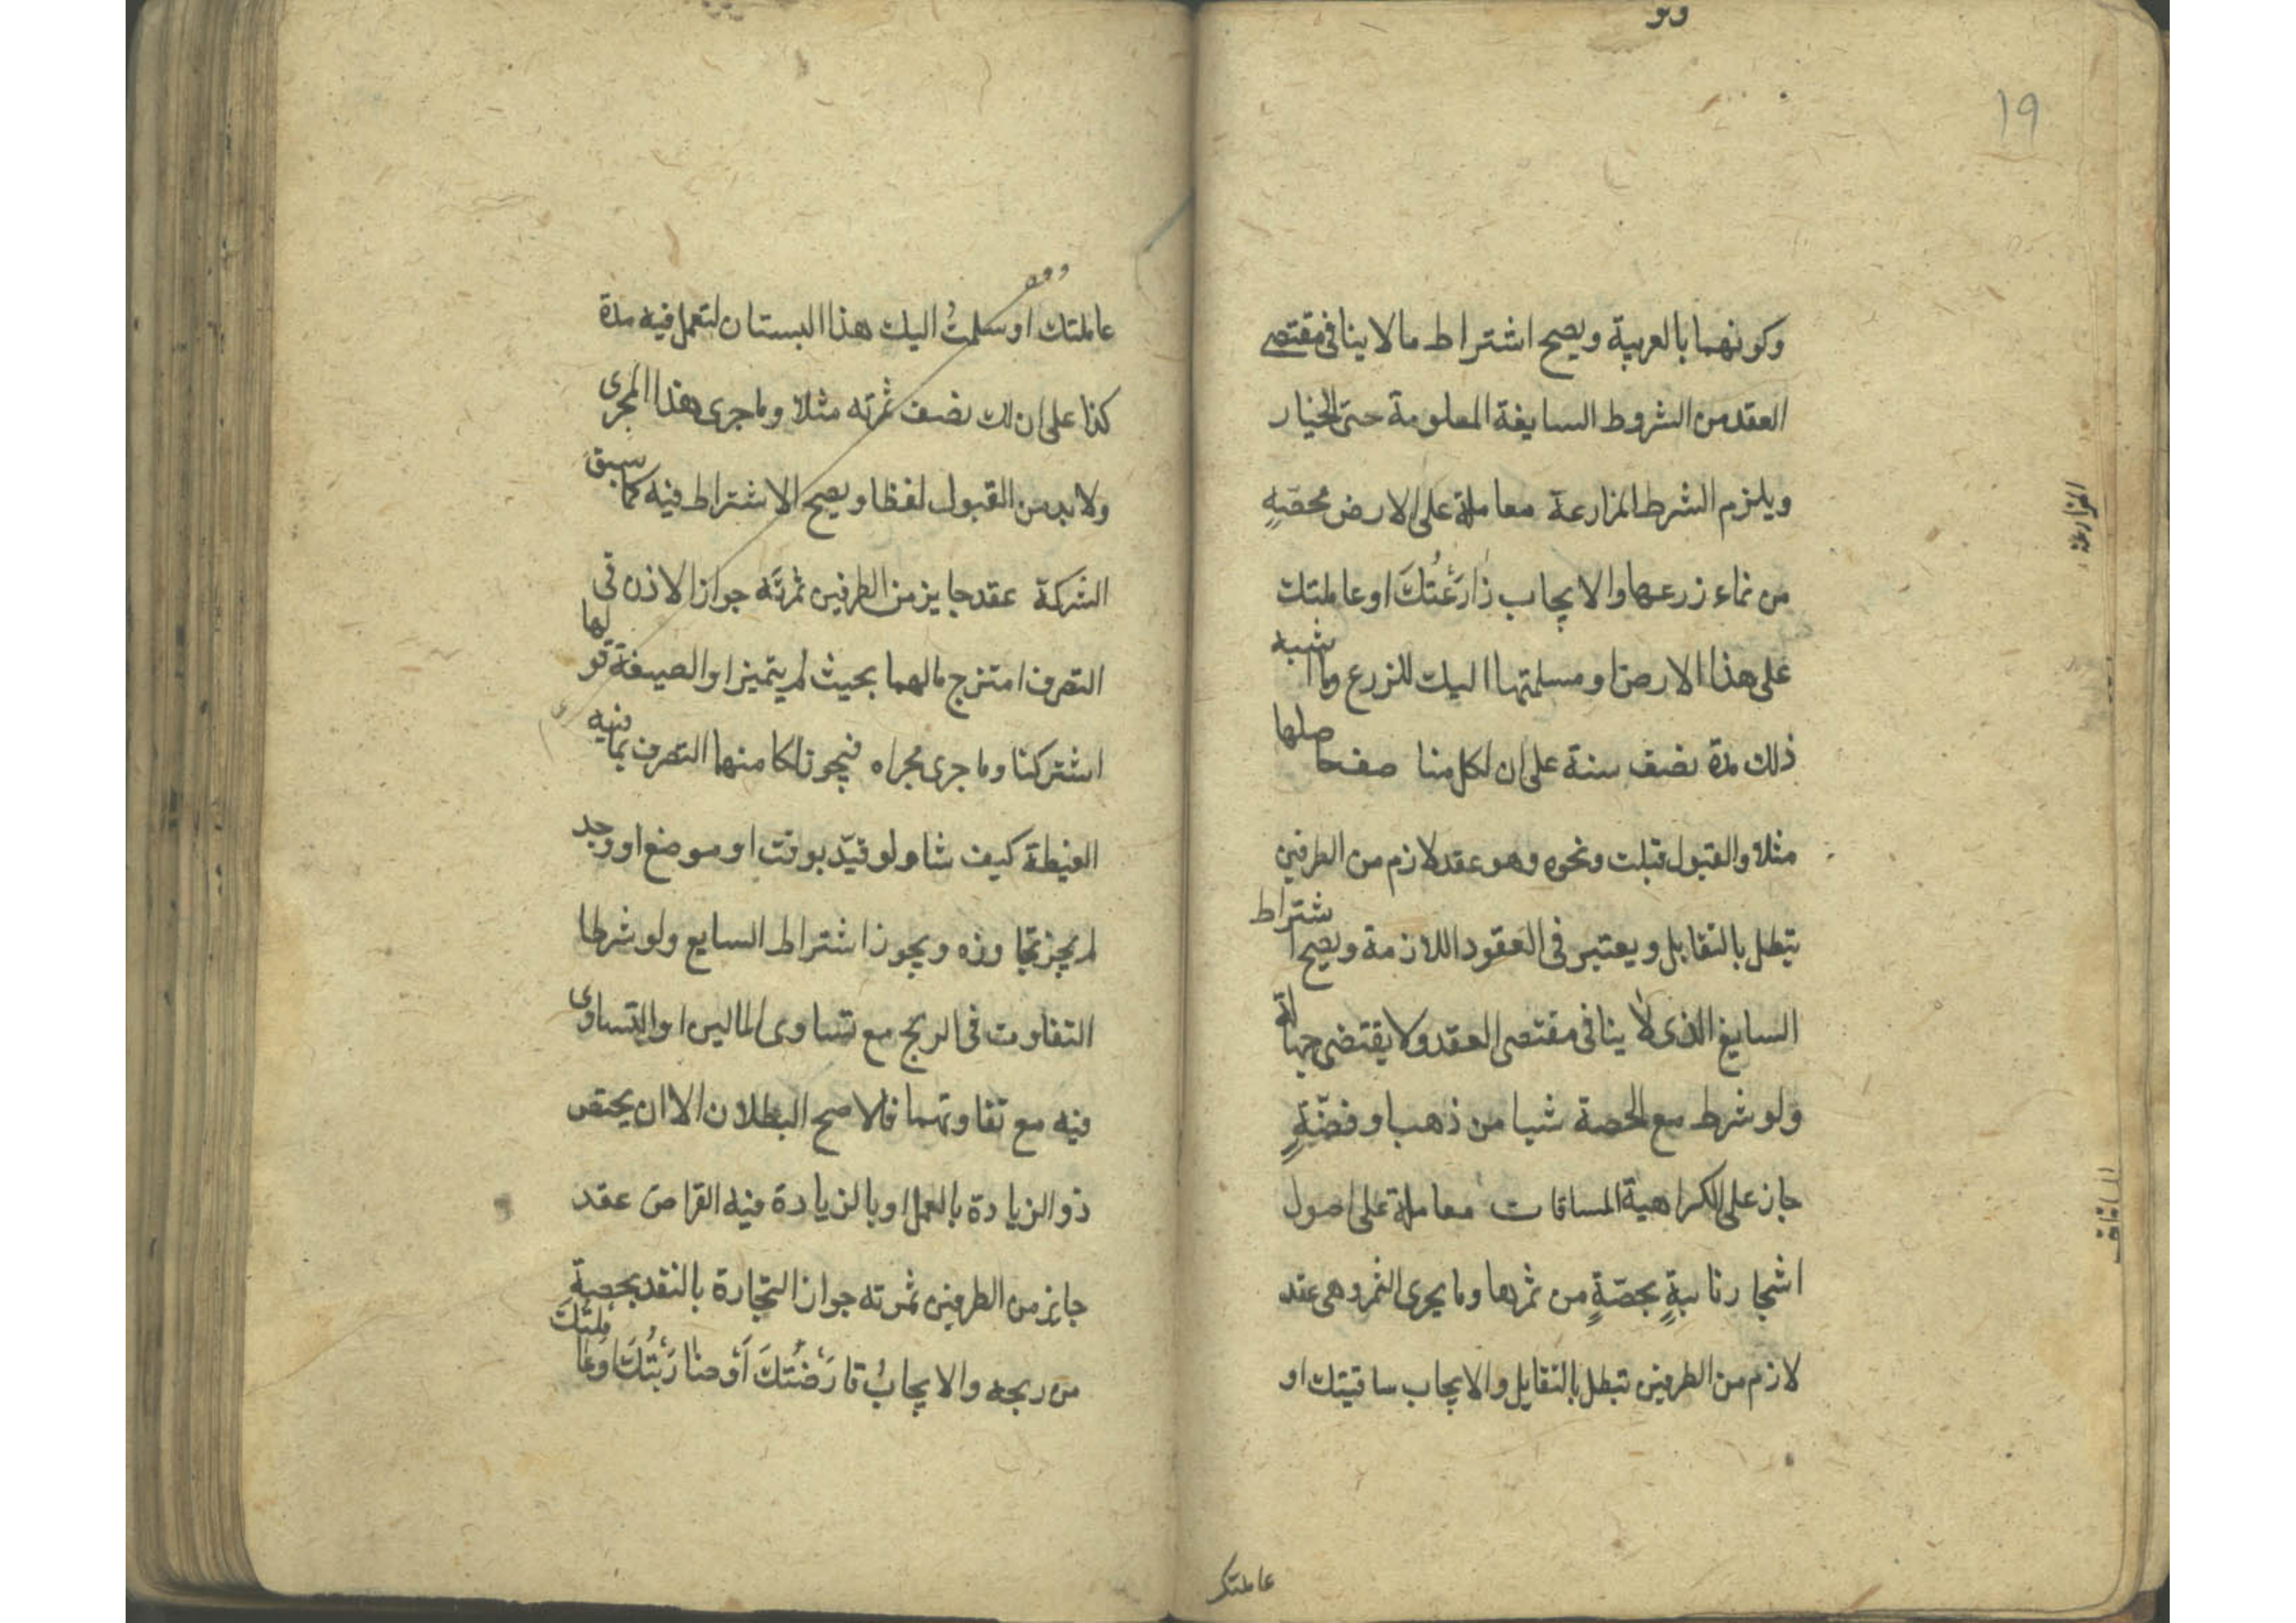 وقو
١٩
وكونهما بالعربية ويصح اشتراط مالا ينافى مقتضى
العقد من الشروط السايغة المعلومة حتى الخيار
ويلزم الشرط المزارعة معاملة على الارض بحصّةٍ
من نماء زرعها والايجاب زٰارَعْتُكَ او عاملتك
على هذا الارض او سلمتها اليك للزرع وما اشبه
ذلك مدة نصف سنة على ان لكل منا صف حاصلها
مثلا والقبول قبلت ونحوه وهو عقد لازم من الطرفين
تبطل بالتقايل ويعتبر فى العقود اللازمة ويصح اشتراط
السايغ الذى لا ينافى مقتضى العقد ولا يقتضى جهالة
ولو شرط مع الحصة شيا من ذهب او فضّةٍ
جاز على الكراهية المساقات معاملة على اصول
اشجار ثابتةٍ بحصّةٍ من ثمرها وما يجرى الثمر وهى عقد
لازم من الطرفين تبطل بالتقايل والايجاب ساقيتك او
المزارعة
المساقات
عاملتك
عاملتك او سلمتُ اليك هذا البستان لتعمل فيه مدة
كذا على ان لك نصف ثمرته مثلا وما جرى هذا المجرى
ولابد من القبول لفظا ويصح الاشتراط فيه كما سبق
الشركة عقد جايز من الطرفين ثمرته جواز الاذن فى
التصرف امتزج مالهما بحيث لم يتميز او الصيغة قولها
اشتركنا وما جرى مجراه فيجوز لكل منهما التصرف بما فيه
الغبطة كيف شاء ولو قيّد بوقت او موضع او وجد
لم يجز تجاوزه ويجوز اشتراط السايع ولو شرطا
التفاوت فى الربح مع تساوى المالين او التساوى
فيه مع تفاوتهما فالاصح البطلان الا ان يختص
ذو الزيادة بالعمل او بالزيادة فيه القراض عقد
جايز من الطرفين ثمرته جواز التجارة بالنقد بحصة
من ربحه والايجابُ قارَضْتُكَ اَوْ ضٰارَبْتُكَ او عاملتك